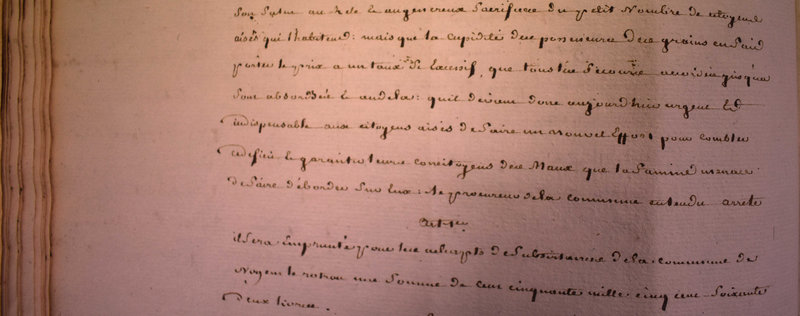 Son Salut au Zele Et augenereux Sacrifice du petit Nombre de citoyens
aisés qui l'habitent: mais que la Cupidité des possesseurs des grains en fait
porter le prix a un taux Si Excessif, que tous les Secours accordés jusqu'a
Sont absorbés Et audela: quil devient donc aujourdhui urgent Et
indispensable aux citoyens aisés de faire un Nouvel Effort pour combler
ce deficit Et garantir leurs concitoyens des Maux que la famine menace
de faire déborder Sur Eux; le procureur dela commune entendu arrete
art. 1er
il Sera Emprunté pour les achapts de Subsistances de la commune de
Nogent le rotrou une Somme de Cent cinquante mille cinq cent Soixante
Deux livres.